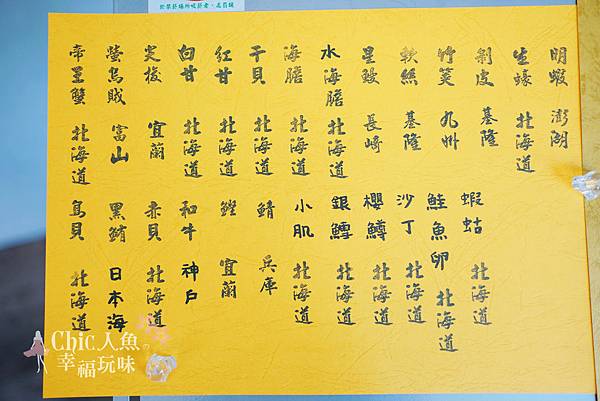 於禁菸場所吸菸者，處罰鍰
明蝦 澎湖
生蠔 北海道
剝皮 基隆
竹筴 九州
軟絲 基隆
星鰻 長崎
水海膽 北海道
海膽 北海道
干貝 北海道
紅甘 北海道
白甘 北海道
尖梭 宜蘭
螢烏賊 富山
帝王蟹 北海道
蝦蛄 北海道
鮭魚卵 北海道
沙丁 北海道
櫻鱒 北海道
銀鱈 北海道
小肌 北海道
鯖 兵庫
鰹 宜蘭
和牛 神戶
赤貝 北海道
黑鮪 日本海
鳥貝 北海道
Chic人魚
幸福玩味